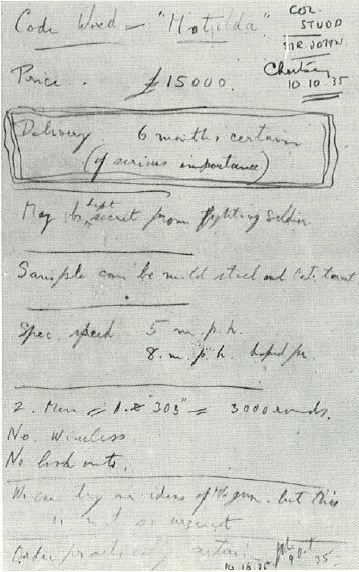 Code Word – "Matilda"
COL. STUDD
SIR. JOHN.
Price. £15000.
10.10.35
Delivery 6 months certain
(of serious importance)
May be kept secret from fighting soldier
Sample can be mild steel and
Spec. speed 5 m.p.h.
8. m.p.h. hoped for
2. Men "303" = 3000 rounds.
No. Wireless.
No look outs.
We can try our ideas of gun. but this
is not so urgent
Order practically certain
10.10.35